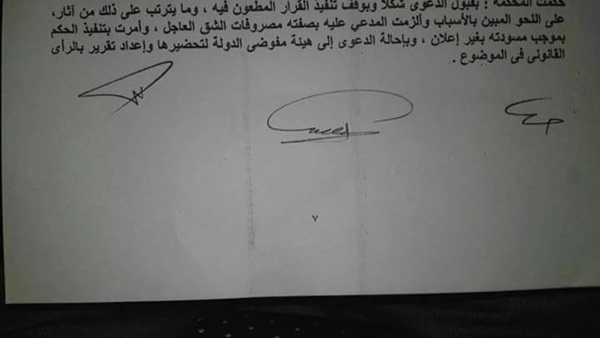 حكمت المحكمة : بقبول الدعوى شكلاً وبوقف تنفيذ القرار المطعون فيه ، وما يترتب على ذلك من آثار،
على النحو المبين بالأسباب وألزمت المدعي عليه بصفته مصروفات الشق العاجل ، وأمرت بتنفيذ الحكم
بموجب مسودته بغير إعلان ، وبإحالة الدعوى إلى هيئة مفوضى الدولة لتحضيرها وإعداد تقرير بالرأى
القانونى فى الموضوع .
٧